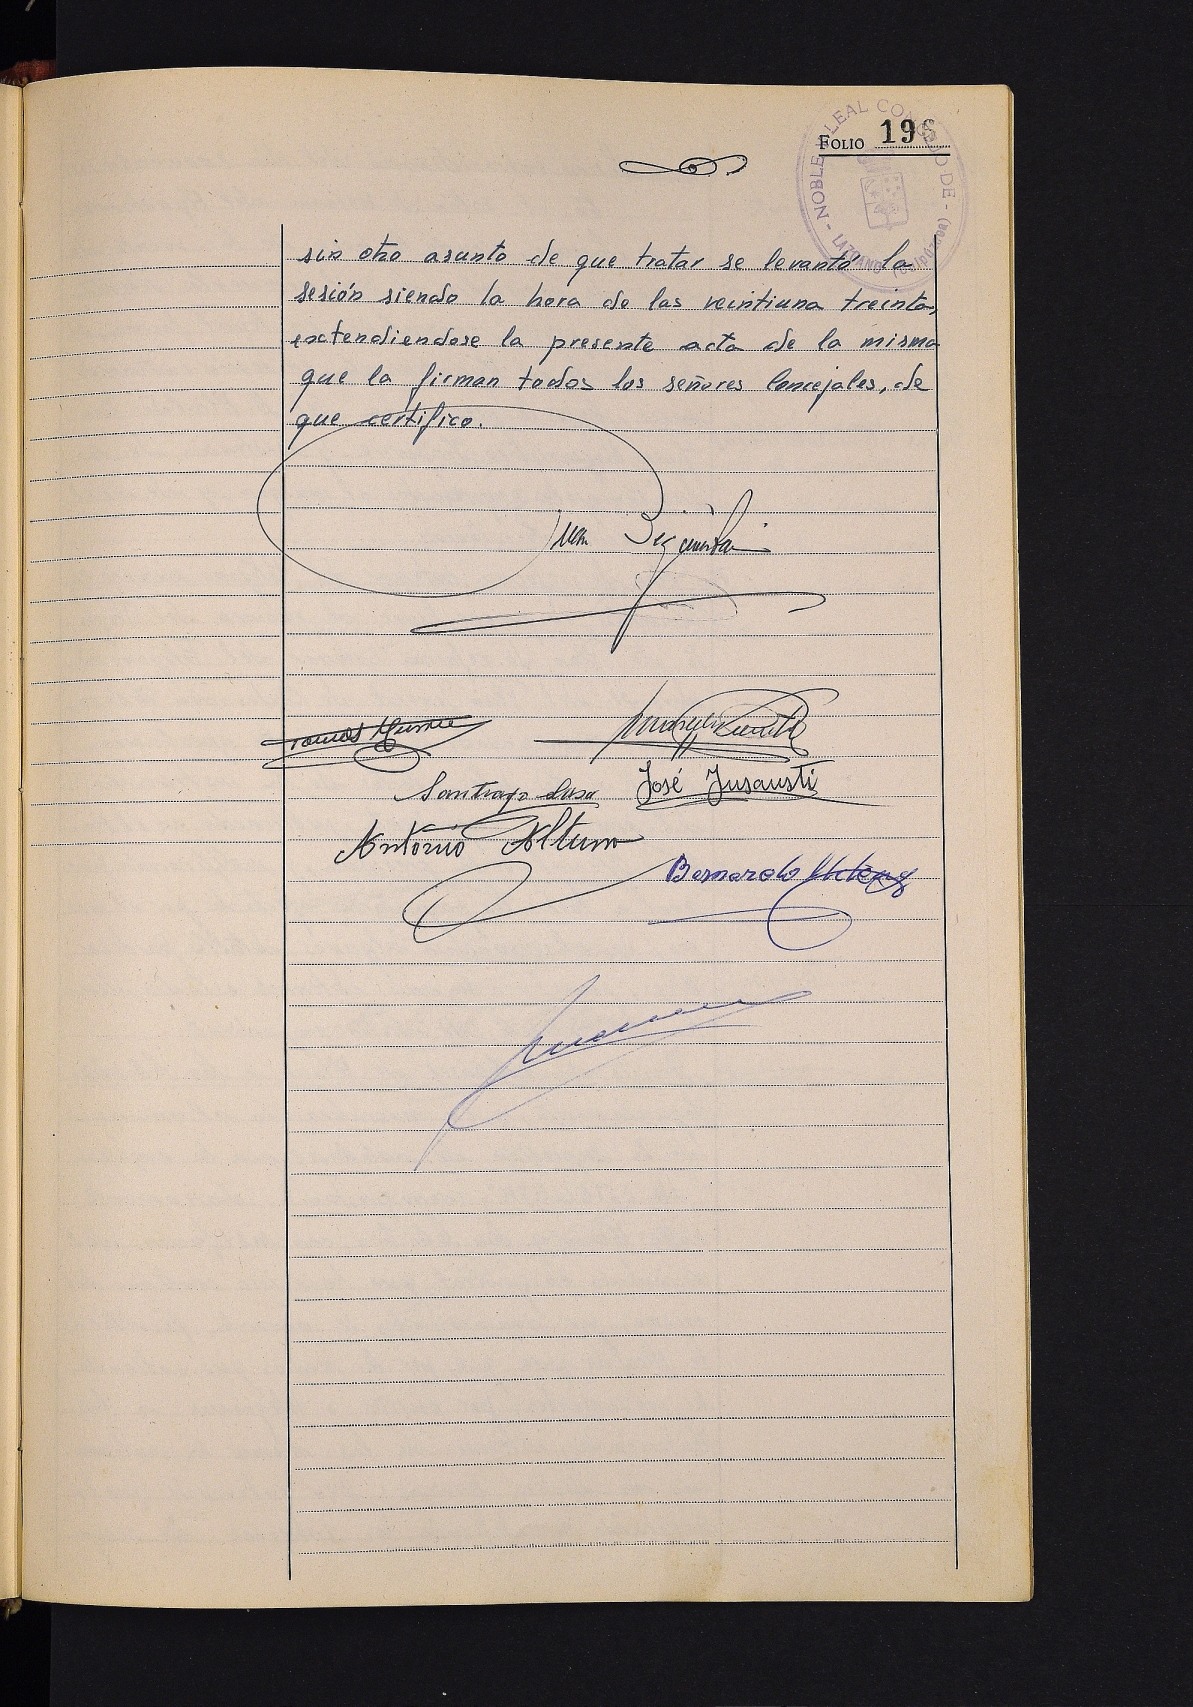 NOBLE Y LEAL CONCEJO DE
LAZCANO (Guipúzcoa)
FOLIO 196
sin otro asunto de que tratar se levantó la
sesión siendo la hora de las veintiuna treinta,
extendiendose la presente acta de la misma
que la firman todos los señores Concejales, de
que certifico.
Juan
Tomás
Santiago Lasa
José Insausti
Antonio Altuna
Bernardo